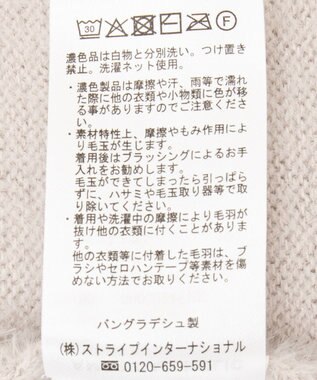 30
F
濃色品は白物と分別洗い。つけ置き
禁止。洗濯ネット使用。
・濃色製品は摩擦や汗、雨等で濡れ
た際に他の衣類や小物類に色が移
る事がありますのでご注意くださ
い。
・素材特性上、摩擦やもみ作用によ
り毛玉が生じます。
着用後はブラッシングによるお手
入れをお勧めします。
毛玉ができてしまったら引っぱら
ずに、ハサミや毛玉取り器等で取
り除いてください。
・着用や洗濯中の摩擦により毛羽が
抜け他の衣類に付くことがありま
す。
他の衣類等に付着した毛羽は、ブ
ラシやセロハンテープ等素材を傷
めない方法でお取りください。
バングラデシュ製
(株)ストライプインターナショナル
0120-659-591